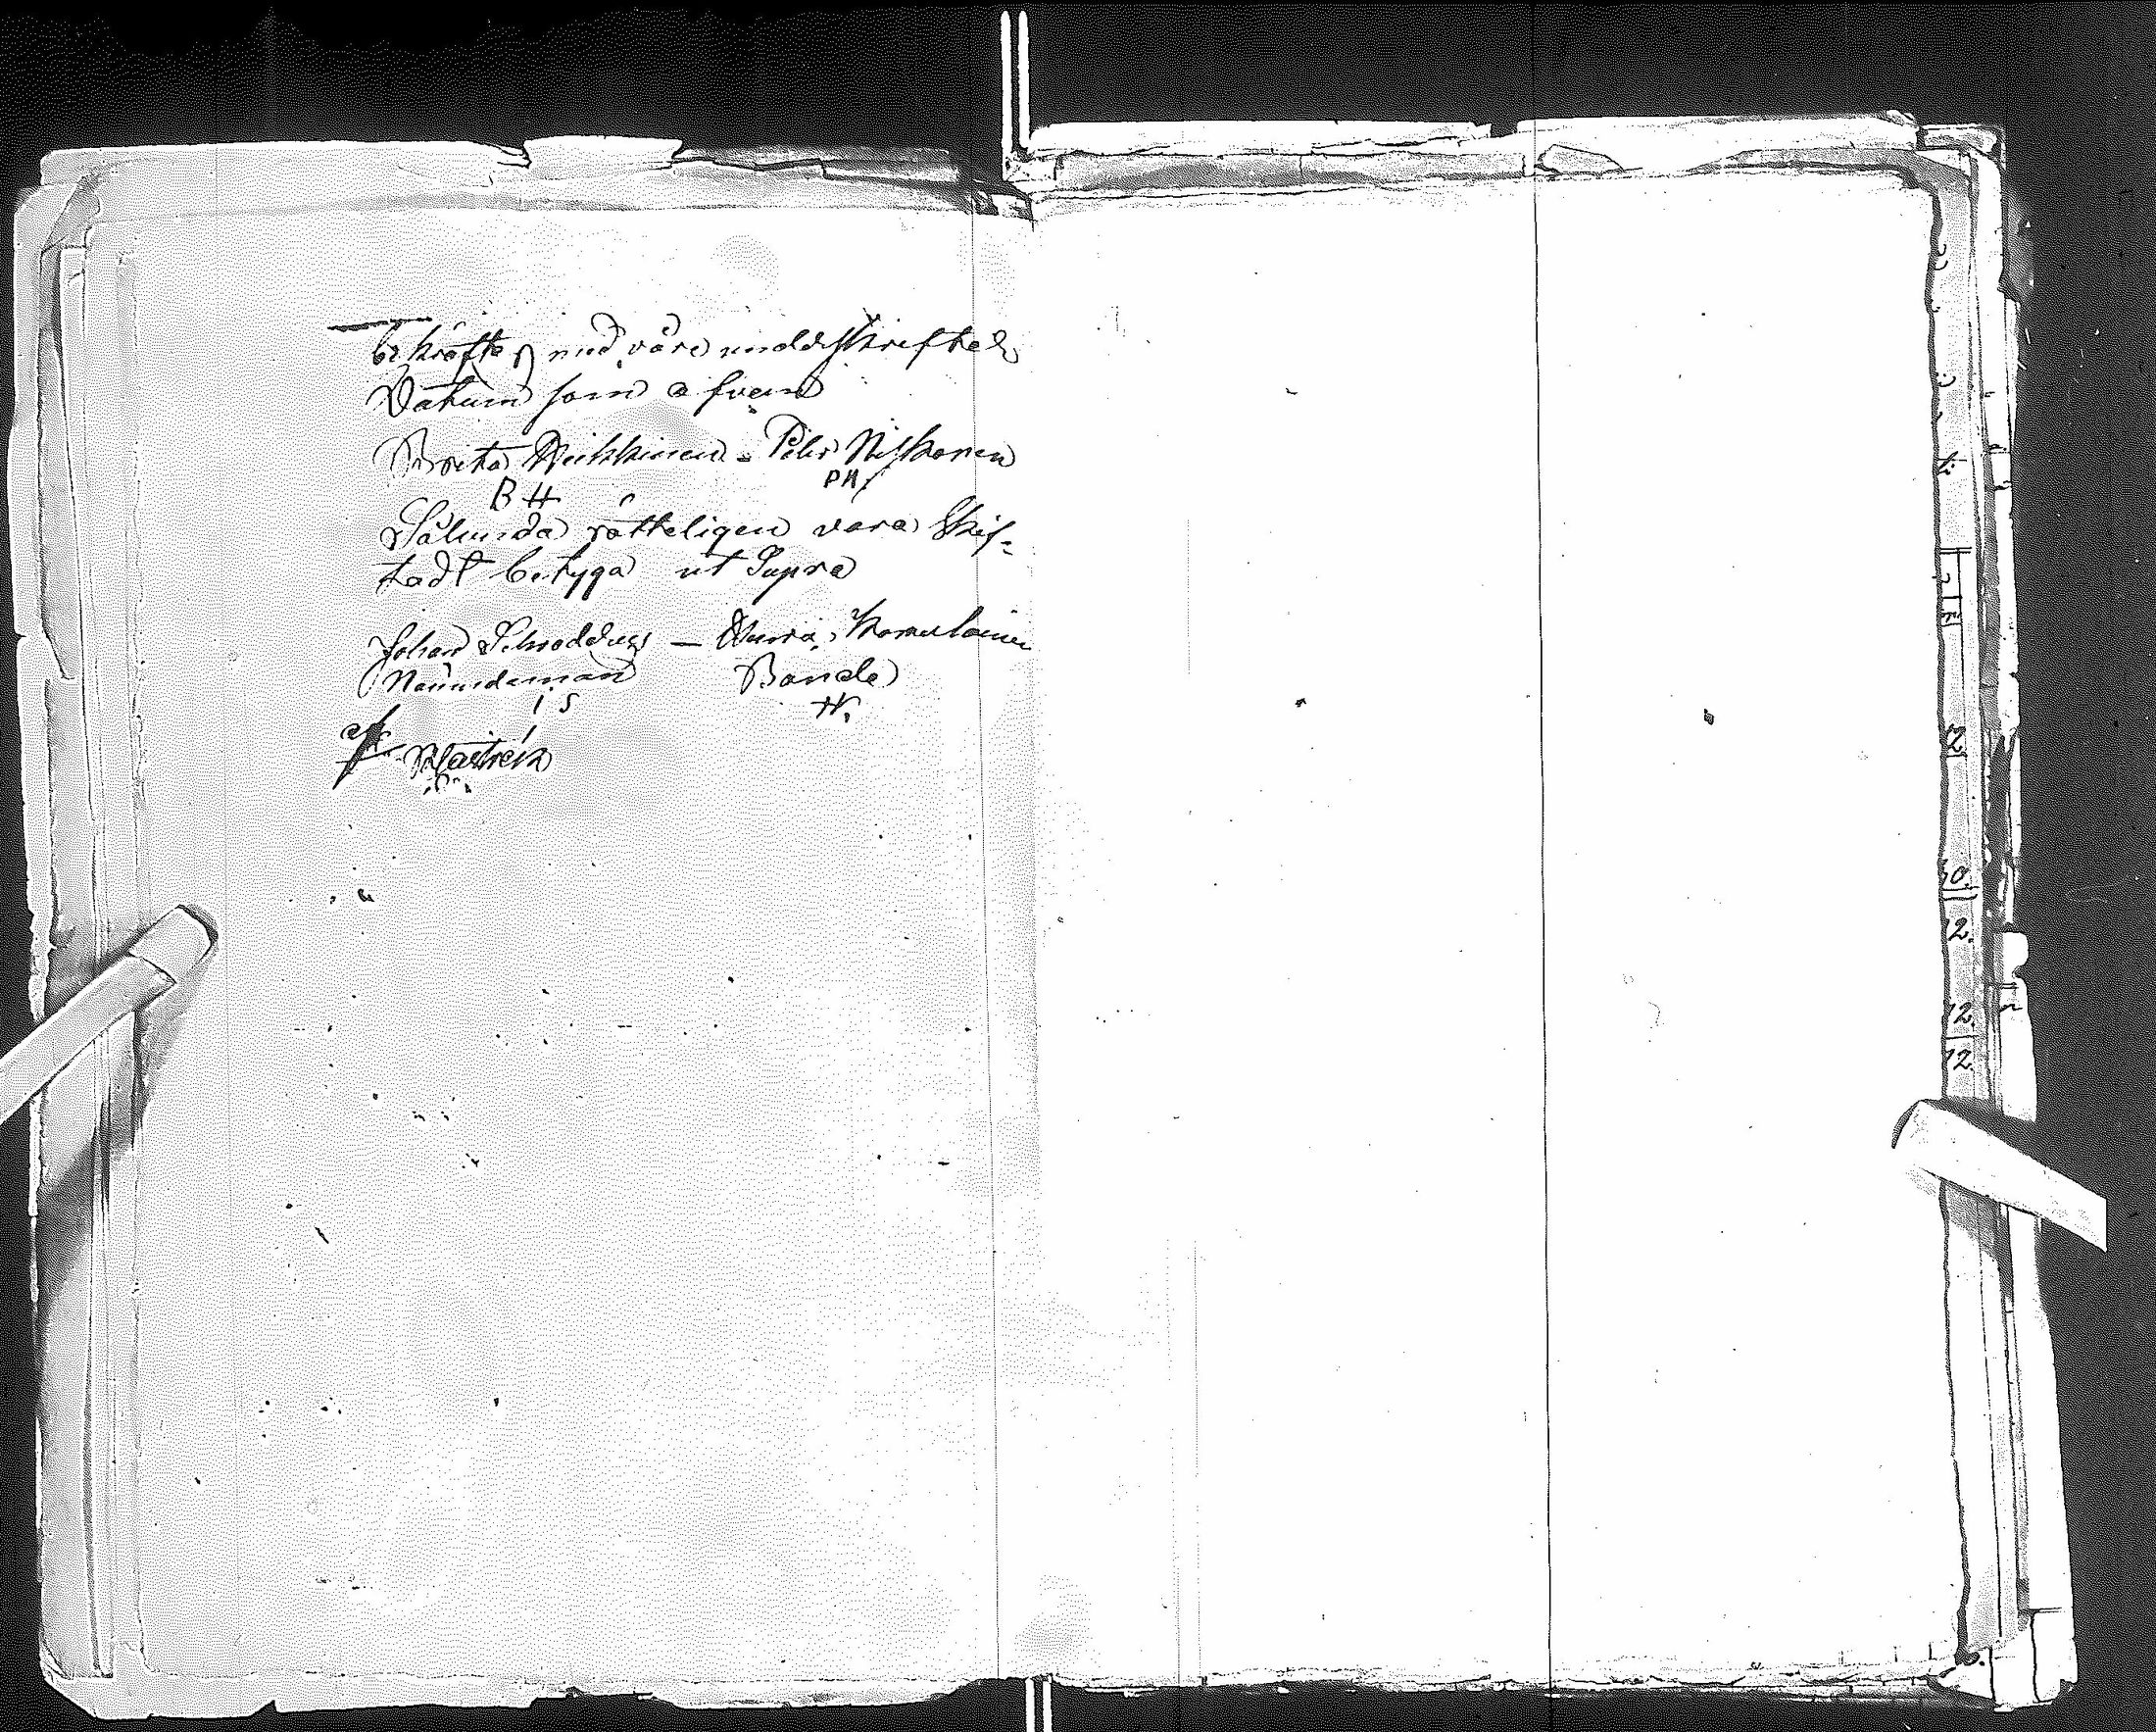 bekräftas med våre underskrifter
Datum som ofvan
Brita Heikkinen - Peter Niskanen
BH PN
Sålunda rätteligen vara Skif-
tadt betyga ut Supra
Johan Schrodderus — Komulainen
Nämndeman Bonde
IS
12.
12.
12.